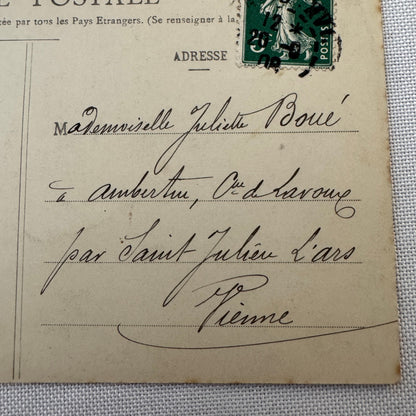 POSTALE
par tous les Pays Etrangers. (Se renseigner à la
ADRESSE
POSTES
12
08
Mademoiselle Juliette Boué
à Ambertin, Cne de Lavoux
par Saint Julien L'ars
Vienne